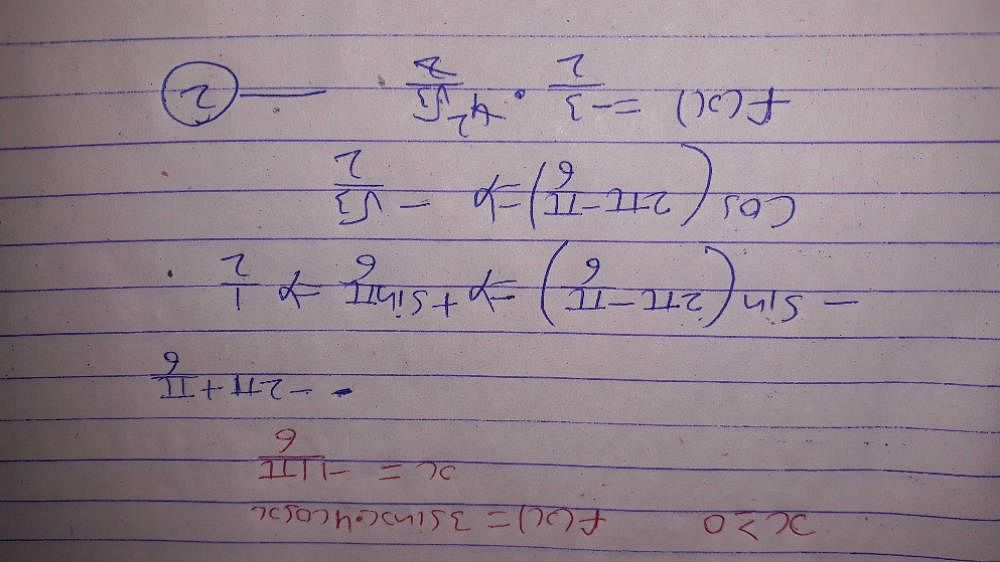 x ≥ 0 f(x) = 3 sinx·4cosx
x = -11π/6
- -2π + π/6
- sin (2π - π/6) => + sin π/6 => 1/2
cos (2π - π/6) => - √3/2
f(x) = -3/2 · 4 2 √3/2 — 2